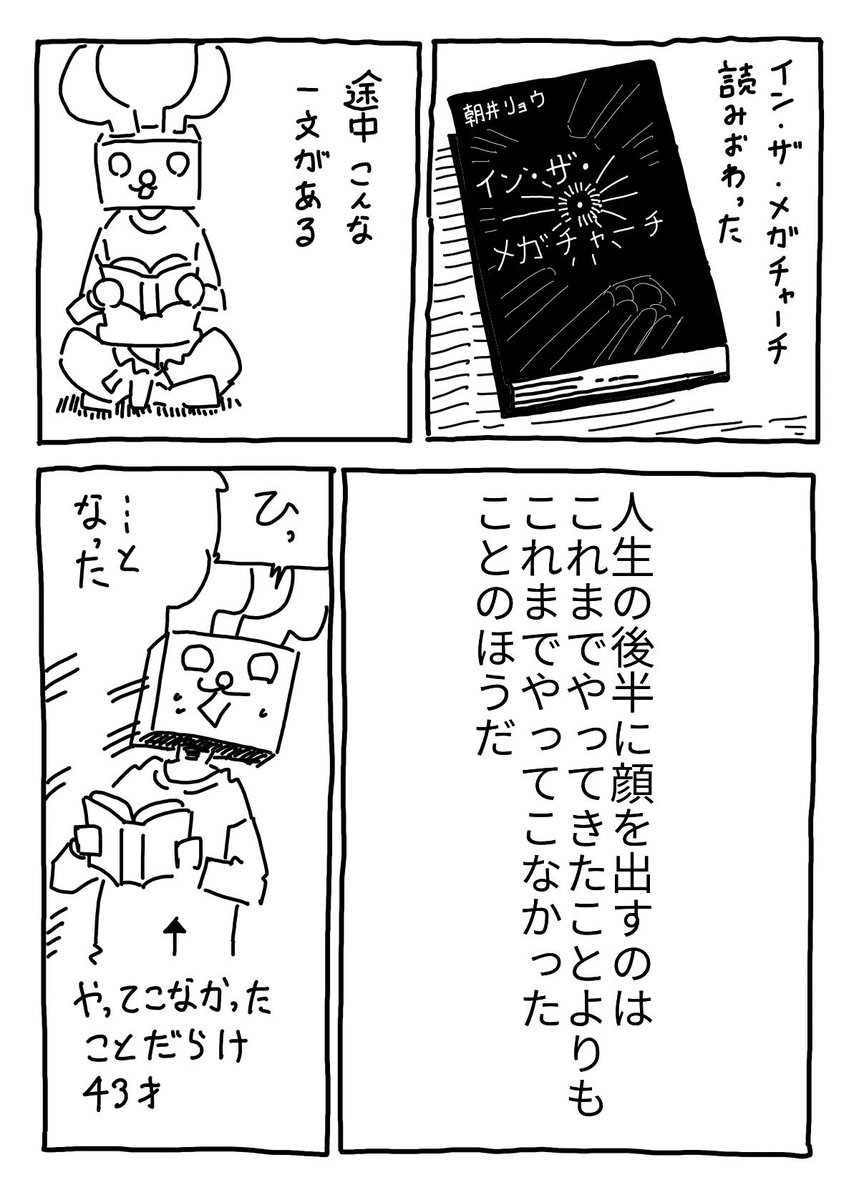 イン・ザ・メガチャーチ
読みおわった
朝井リョウ
イン・ザ・
メガチャーチ
途中 こんな
一文がある
人生の後半に顔を出すのは
これまでやってきたことよりも
これまでやってこなかった
ことのほうだ
ひっ
……と
なった
↑
やってこなかった
ことだらけ
43才